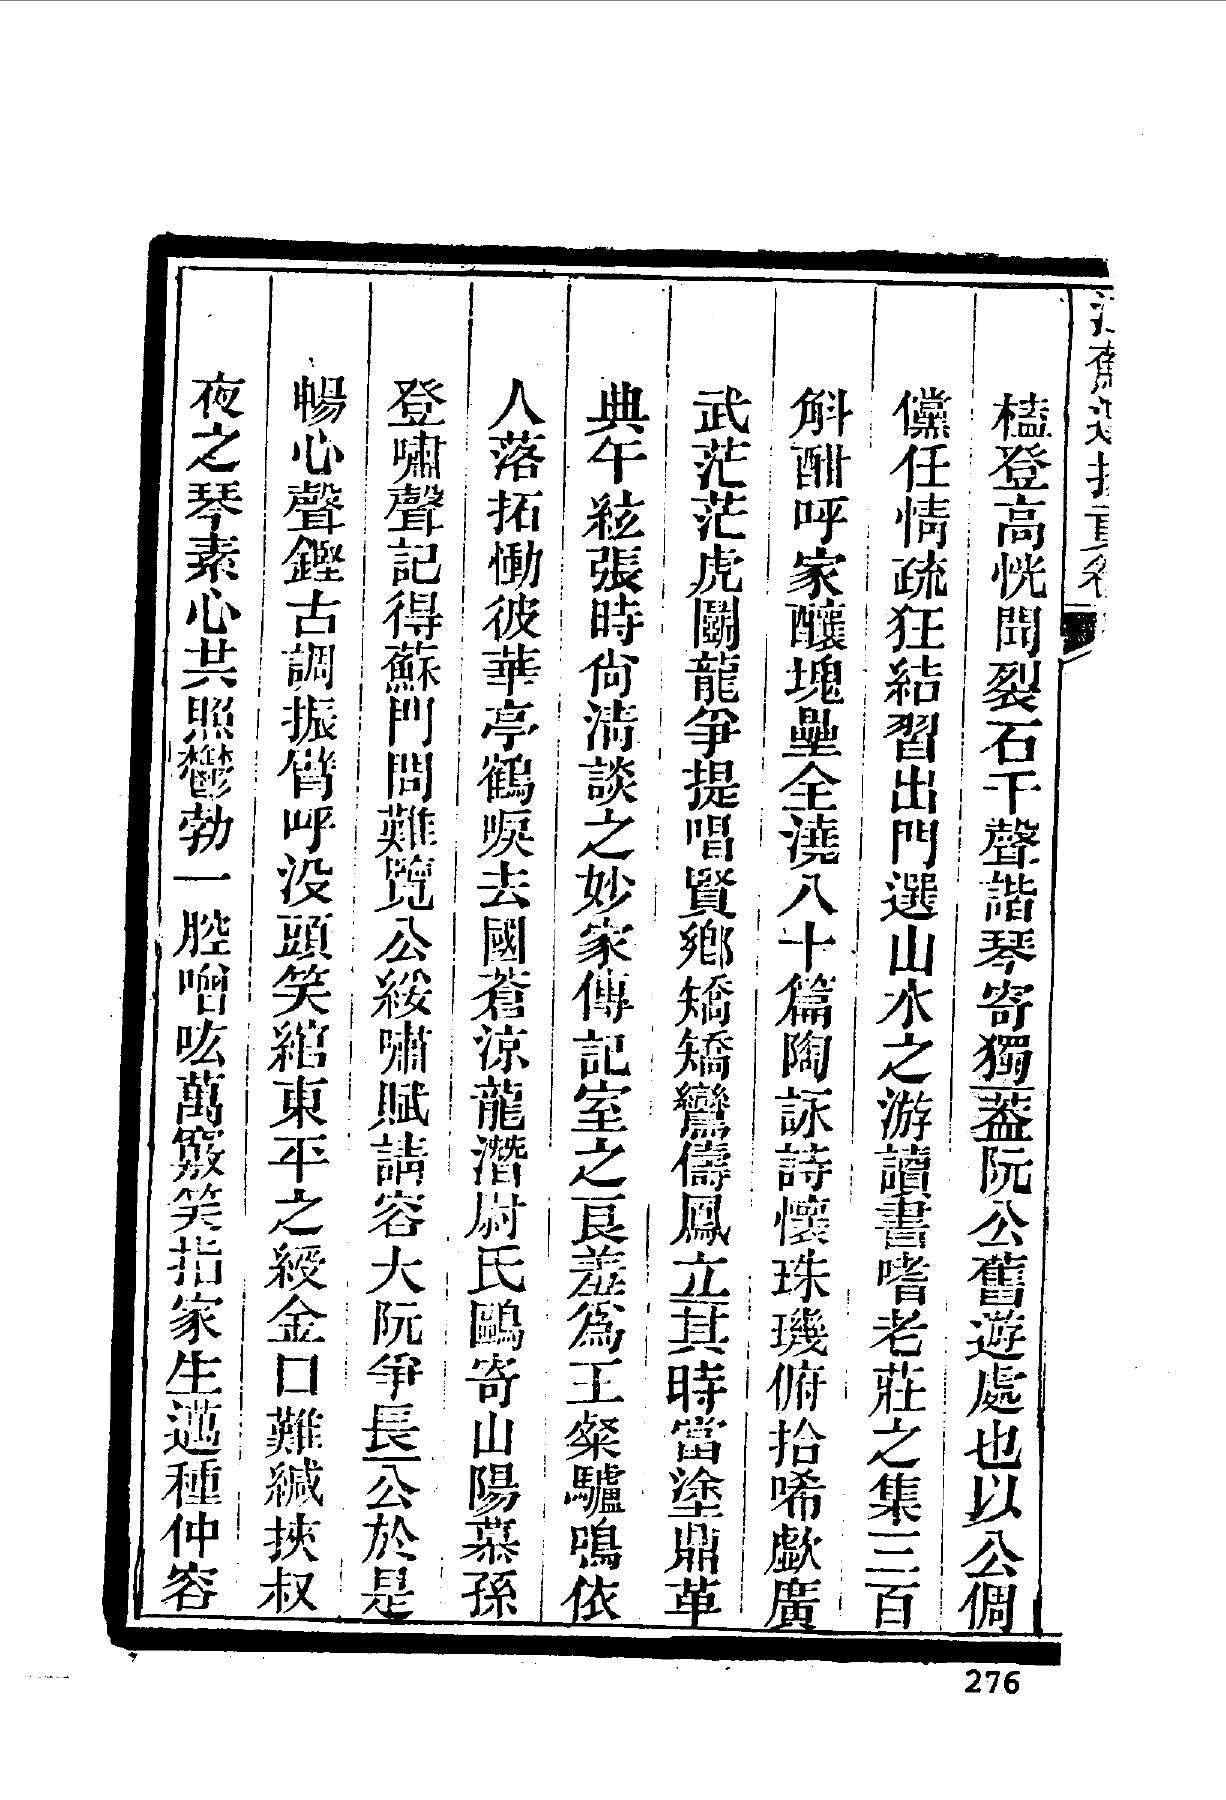 榼登高恍聞裂石千聲諧琴寄獨葢阮公舊遊處也以公倜
儻任情疏狂結習出門選山水之游讀書嗜老莊之集三百
斛酣呼家釀塊壘全澆八十篇陶詠詩懷珠璣俯拾唏歔廣
武茫茫虎鬭龍爭提唱賢鄉矯矯鸞儔鳳立其時當塗鼎革
典午絃張時尙淸談之妙家傳記室之良羞爲王粲驢鳴依
人落拓慟彼華亭鶴唳去國蒼涼龍潛尉氏鷗寄山陽慕孫
登嘯聲記得蘇門問難覽公綏嘯賦請容大阮爭長公於是
暢心聲鏗古調振脣呼没頭笑綰東平之綬金口難緘挾叔
夜之琴素心共照鬱勃一腔噌吰萬竅笑指家生邁種仲容
276